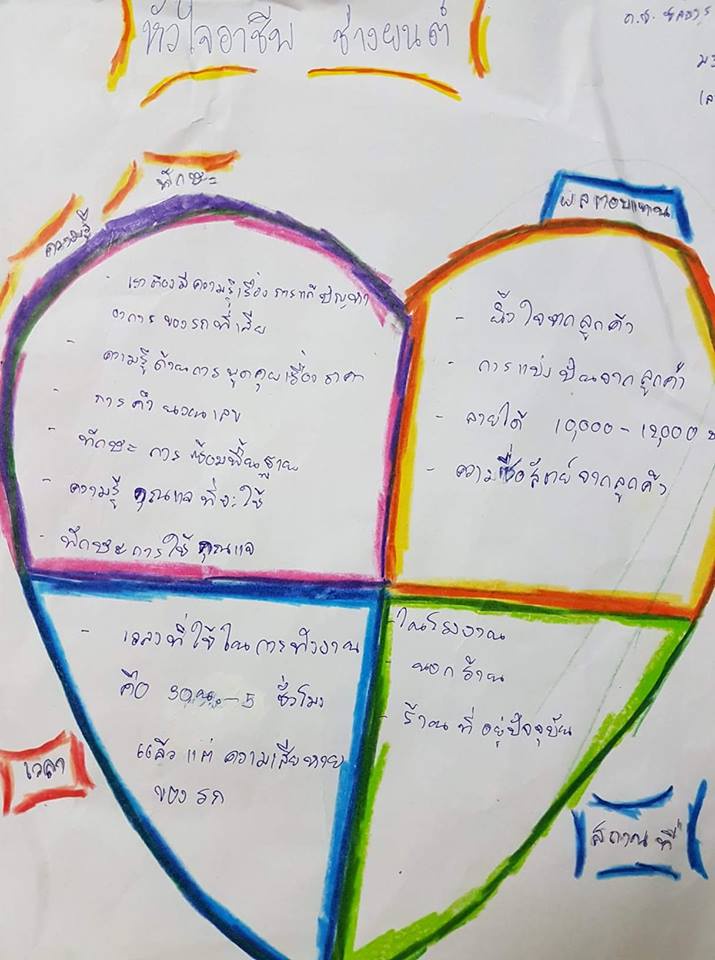 หัวใจอาชีพ ช่างยนต์
ด.ช.
ทักษะ
ความรู้
ผลตอบแทน
- เราต้องมีความรู้เรื่องการแก้ปัญหา
อาการของรถที่เสีย
- ความรู้ด้านการพูดคุยเรื่องราคา
- การคำนวนเลข
- ทักษะการซ่อมพื้นฐาน
- ความรู้ กุณแจที่จะใช้
- ทักษะการใช้กุณแจ
- น้ำใจจากลูกค้า
- การแบ่งปันจากลูกค้า
- รายได้ 10,000 - 12,000
- ความซื่อสัตย์จากลูกค้า
- เวลาที่ใช้ในการทำงาน
คือ 30น. - 5 ชั่วโมง
แล้วแต่ความเสียหาย
ของรถ
เวลา
- ในโรงงาน
- นอกร้าน
- ร้านที่อยู่ปัจจุบัน
สถานที่